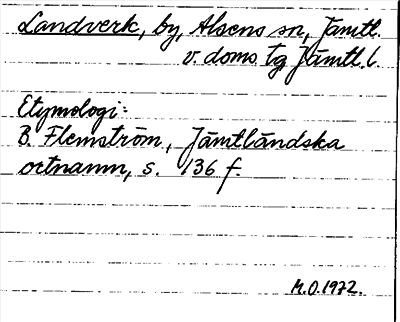 Landverk, by, Alsens sn, Jämtl.
v. doms. tg Jämtl. l.
Etymologi:
B. Flemström, Jämtländska
ortnamn, s. 136 f.
M.O.1972.